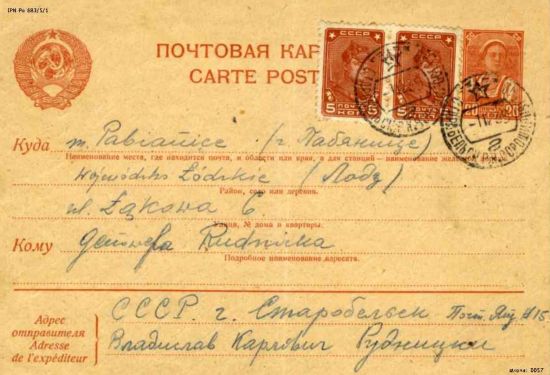 IPN-Po 683/5/1
ПОЧТОВАЯ КАР
CARTE POST
5 ПОЧТА 5
КОП.
5 ПОЧТА 5
КОП.
20 20
Куда m. Pabianice (г. Пабянице)
Наименование места, где находится почта, и области или края, а для станций — наименование железной дороги
Wojewódstwo Łódzkie (Лодз)
Район, село или деревня.
ul. Łąkowa 6
Улица, № дома и квартиры.
Кому Rudnicka
Подробное наименование адресата.
Адрес отправителя
Adresse de l'expéditeur
СССР г. Старобельск Почт. Ящ #15
Владислав Карлович Рудницки
0057